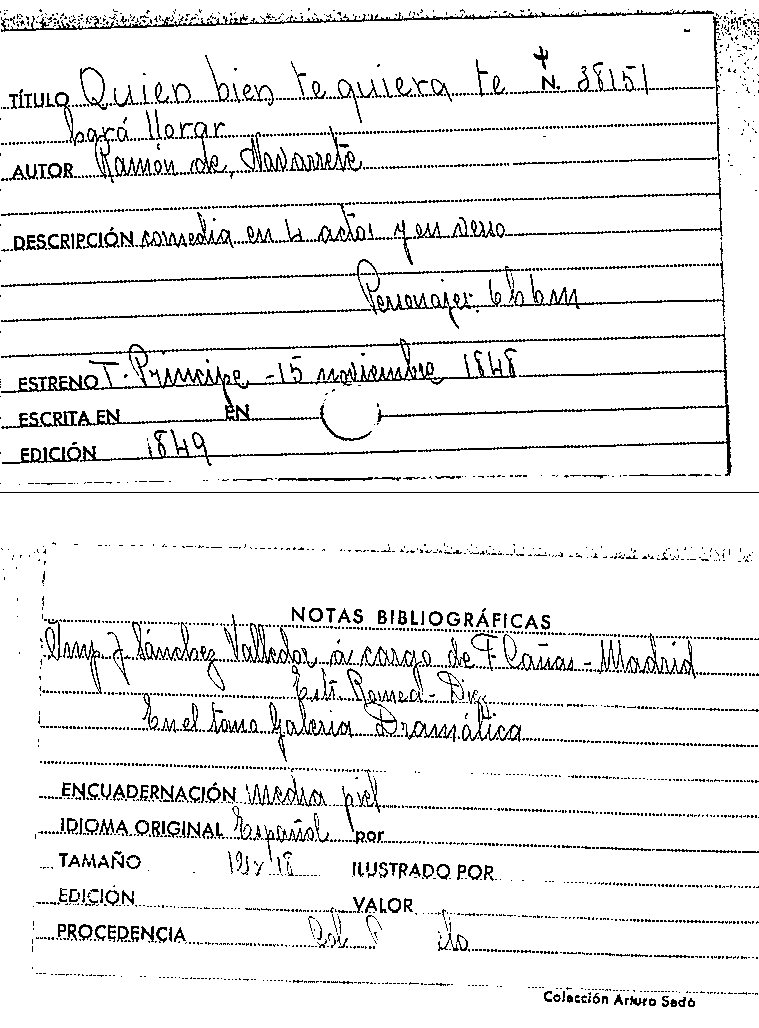 TÍTULO Quien bien te quiera te N. 38151
hará llorar
AUTOR Ramón de Navarrete
DESCRIPCIÓN comedia en 4 actos y en verso
Personajes: 6h 6m
ESTRENO T. Príncipe - 15 noviembre 1848
ESCRITA EN EN
EDICIÓN 1849
NOTAS BIBLIOGRÁFICAS
Imp. J. Sánchez Valledor á cargo de F Cañas - Madrid
En el tomo Galeria Dramática
ENCUADERNACIÓN Media piel
IDIOMA ORIGINAL Español por
TAMAÑO 12 x 18 ILUSTRADO POR
EDICIÓN VALOR
PROCEDENCIA
Colección Arturo Sedó